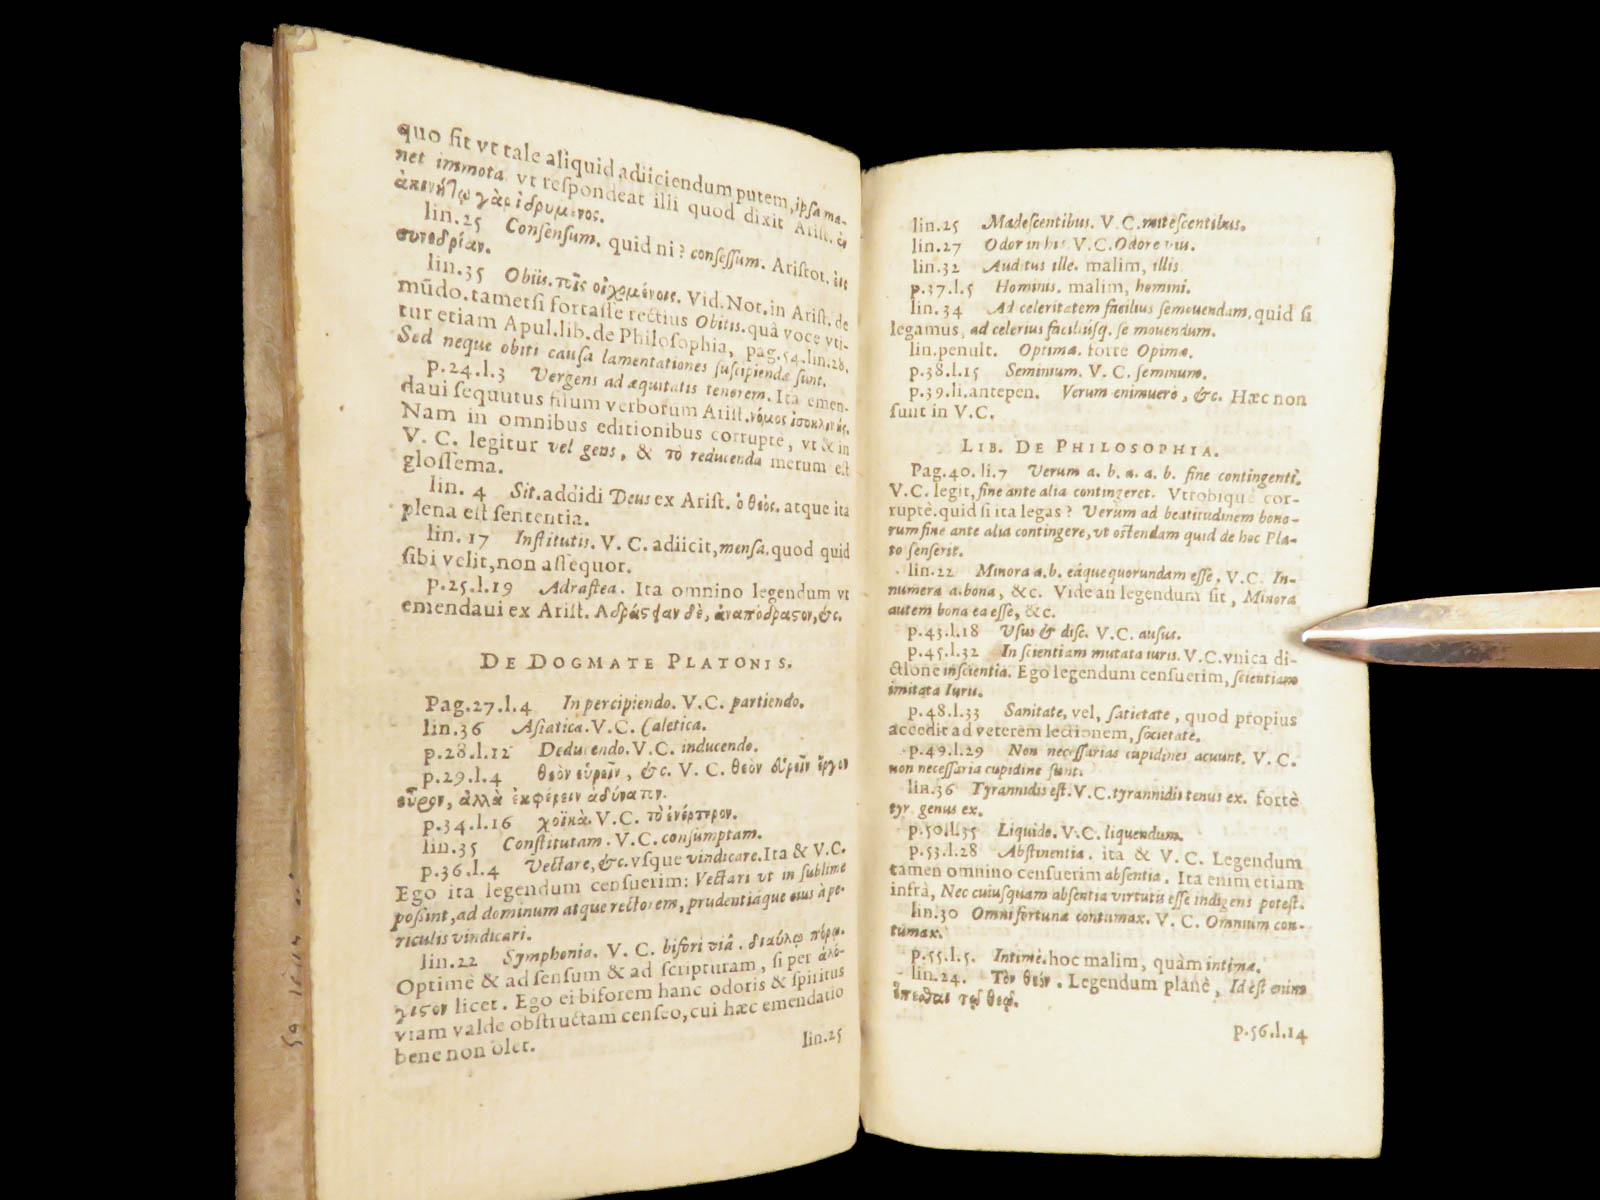 quo fit vt tale aliquid adiiciendum putem, ipsa ma-
net immota vt respondeat illi quod dixit Arist. ἐν
ἀκινήτῳ γὰρ ἱδρυμένος.
lin.25 Consensum. quid ni? consessum. Aristot. εἰς
συνεδρίαν.
lin.35 Obiis. τοῖς οἰχομένοις. Vid. Not. in Arist. de
mūdo. tametsi fortasse rectius Obitis. quâ voce vti-
tur etiam Apul. lib. de Philosophia, pag.54. lin.28.
Sed neque obiti causa lamentationes suscipiendæ sunt.
p.24.l.3 Vergens ad æquitatis tenorem. Ita emen-
daui sequutus filum verborum Arist. νόμος ἰσοκλινής.
Nam in omnibus editionibus corruptè, vt & in
V. C. legitur vel gens, & τὸ reducenda merum est
glossema.
lin. 4 Sit. addidi Deus ex Arist. ὁ θεὸς. atque ita
plena est sententia.
lin. 17 Institutis. V. C. adiicit, mensa. quod quid
sibi velit, non assequor.
p.25.l.19 Adrastea. Ita omnino legendum vt
emendaui ex Arist. Αδράστειαν δὲ, ἀναπόδραστον, &c.
DE DOGMATE PLATONIS.
Pag.27.l.4 In percipiendo. V.C. partiendo.
lin.36 Asiatica. V.C. Caletica.
p.28.l.12 Deducendo. V.C. inducendo.
p.29.l.4 θεὸν εὑρεῖν, &c. V. C. θεὸν εὑρεῖν ἔργον
εὗρον, ἀλλὰ ἐκφέρειν ἀδύνατον.
p.34.l.16 χοϊκὰ. V. C. τὸ ἐνέρτερον.
lin.35 Constitutam. V.C. consumptam.
p.36.l.4 Vectare, &c. vsque vindicare. Ita & V.C.
Ego ita legendum censuerim: Vectari vt in sublime
possint, ad dominum atque rectorem, prudentiáque eius à pe-
riculis vindicari.
lin.22 Symphonia. V. C. bifori viâ. διαύλῳ πόρῳ.
Optimè & ad sensum & ad scripturam, si per ἀλό-
γιστον licet. Ego ei biforem hanc odoris & spiritus
viam valde obstructam censeo, cui hæc emendatio
bene non olet.
lin.25
lin.25 Madescentibus. V. C. mitescentibus.
lin.27 Odor in his V.C. Odore viu.
lin.32 Auditus ille. malim, illis
p.37.l.5 Hominis. malim, homini.
lin.34 Ad celeritatem facilius semouendam. quid si
legamus, ad celerius faciliúsq. se mouendum.
lin.penult. Optimæ. forte Opimæ.
p.38.l.15 Seminium. V. C. seminum.
p.39.li.antepen. Verum enimuerò, &c. Hæc non
sunt in V.C.
LIB. DE PHILOSOPHIA.
Pag.40. li.7 Verum a. b. a. a. b. fine contingenti.
V.C. legit, fine ante alia contingeret. Vtrobique cor-
ruptè. quid si ita legas? Verùm ad beatitudinem bono-
rum fine ante alia contingere, vt ostendam quid de hoc Pla-
to senserit.
lin.22 Minora a.b. eáque quorundam esse, V.C. In-
numera a. bona, &c. Vide an legendum sit, Minora
autem bona ea esse, &c.
p.43.l.18 Vsus & disc. V.C. ausus.
p.45.l.32 In scientiam mutata iuris. V.C. vnica di-
ctione inscientia. Ego legendum censuerim, scientiam
imitata Iuris.
p.48.l.33 Sanitate, vel, satietate, quod propius
accedit ad veterem lectionem, societate.
p.49.l.29 Non necessarias cupidines acuunt. V. C.
non necessaria cupidine sunt.
lin.36 Tyrannidis est. V.C. tyrannidis tenus ex. fortè
tyr. genus ex.
p.50.l.35 Liquido. V.C. liquendum.
p.53.l.28 Abstinentia. ita & V. C. Legendum
tamen omnino censuerim absentia. Ita enim etiam
infrà, Nec cuiusquam absentia virtutis esse indigens potest.
lin.30 Omni fortunæ contumax. V. C. Omnium con-
tumax.
p.55.l.5. Intimè. hoc malim, quàm intimæ.
lin.24. Τὸν θεόν. Legendum planè, Id est enim
ἕπεσθαι τῷ θεῷ.
p.56.l.14